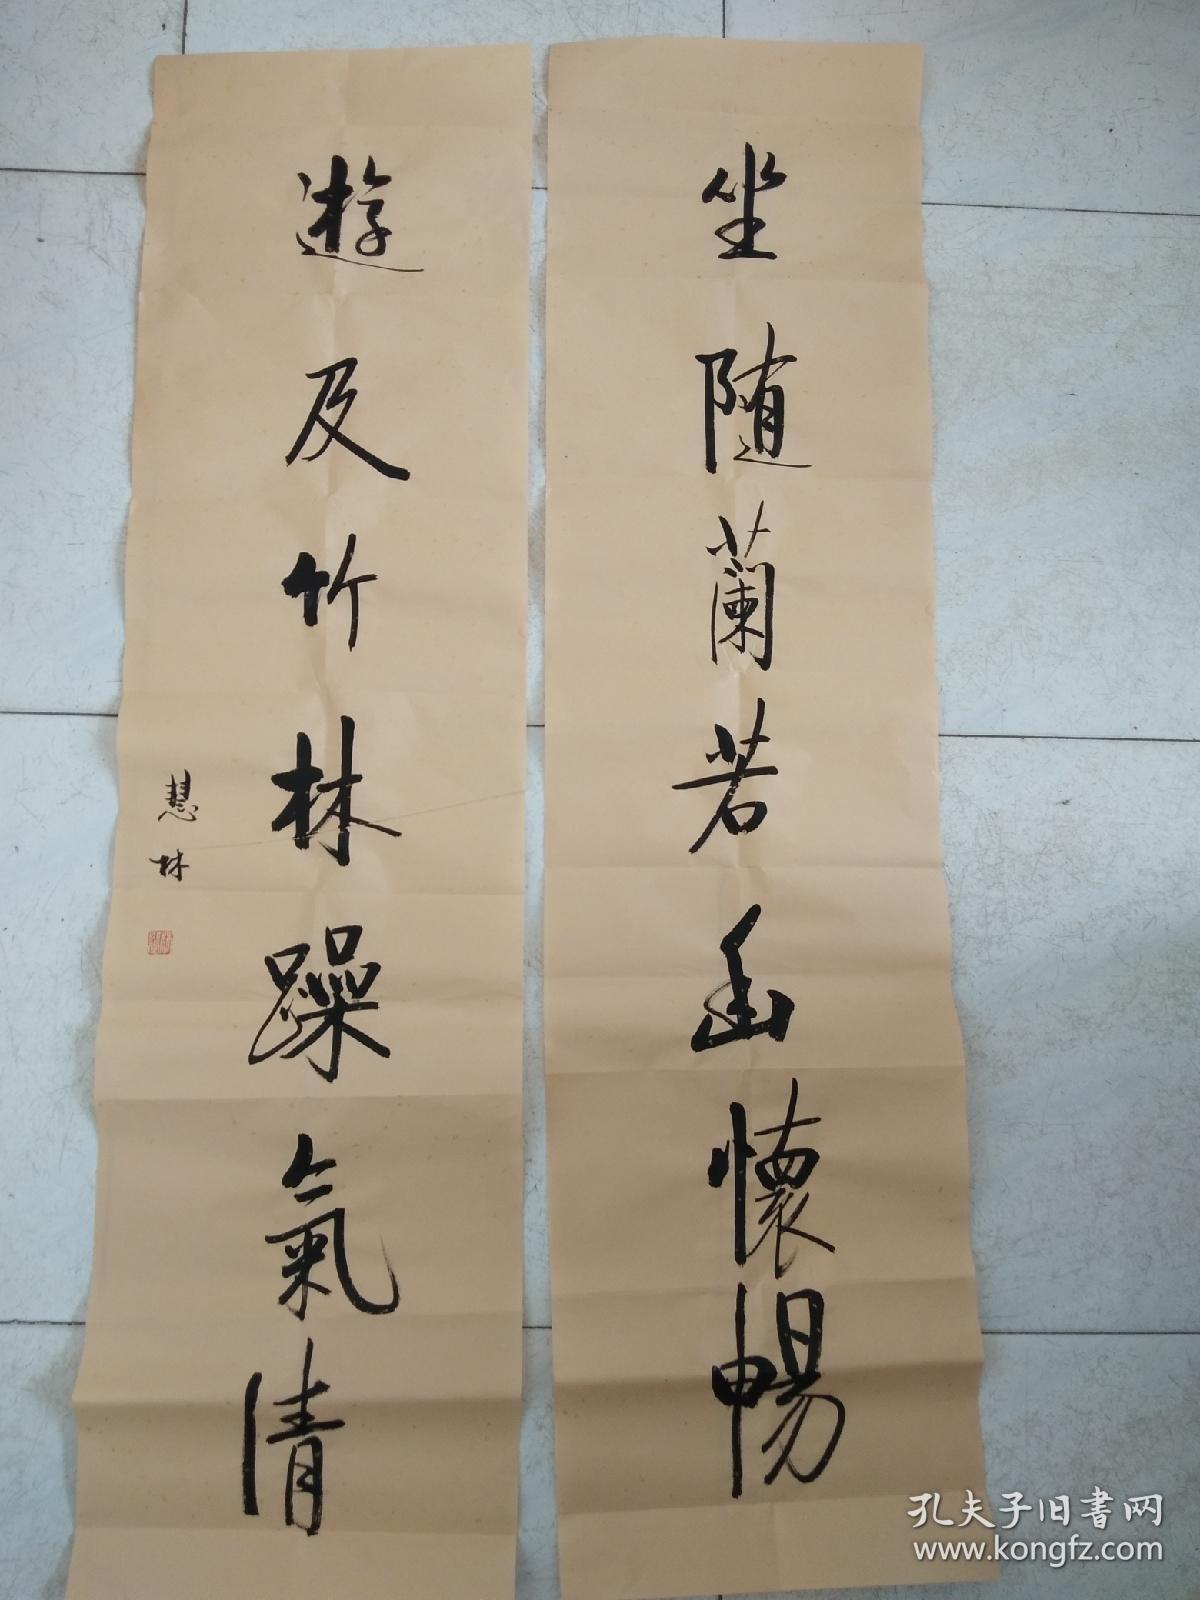 坐随蘭若幽懷暢
遊及竹林躁氣清
慧林
孔夫子旧书网
www.kongfz.com